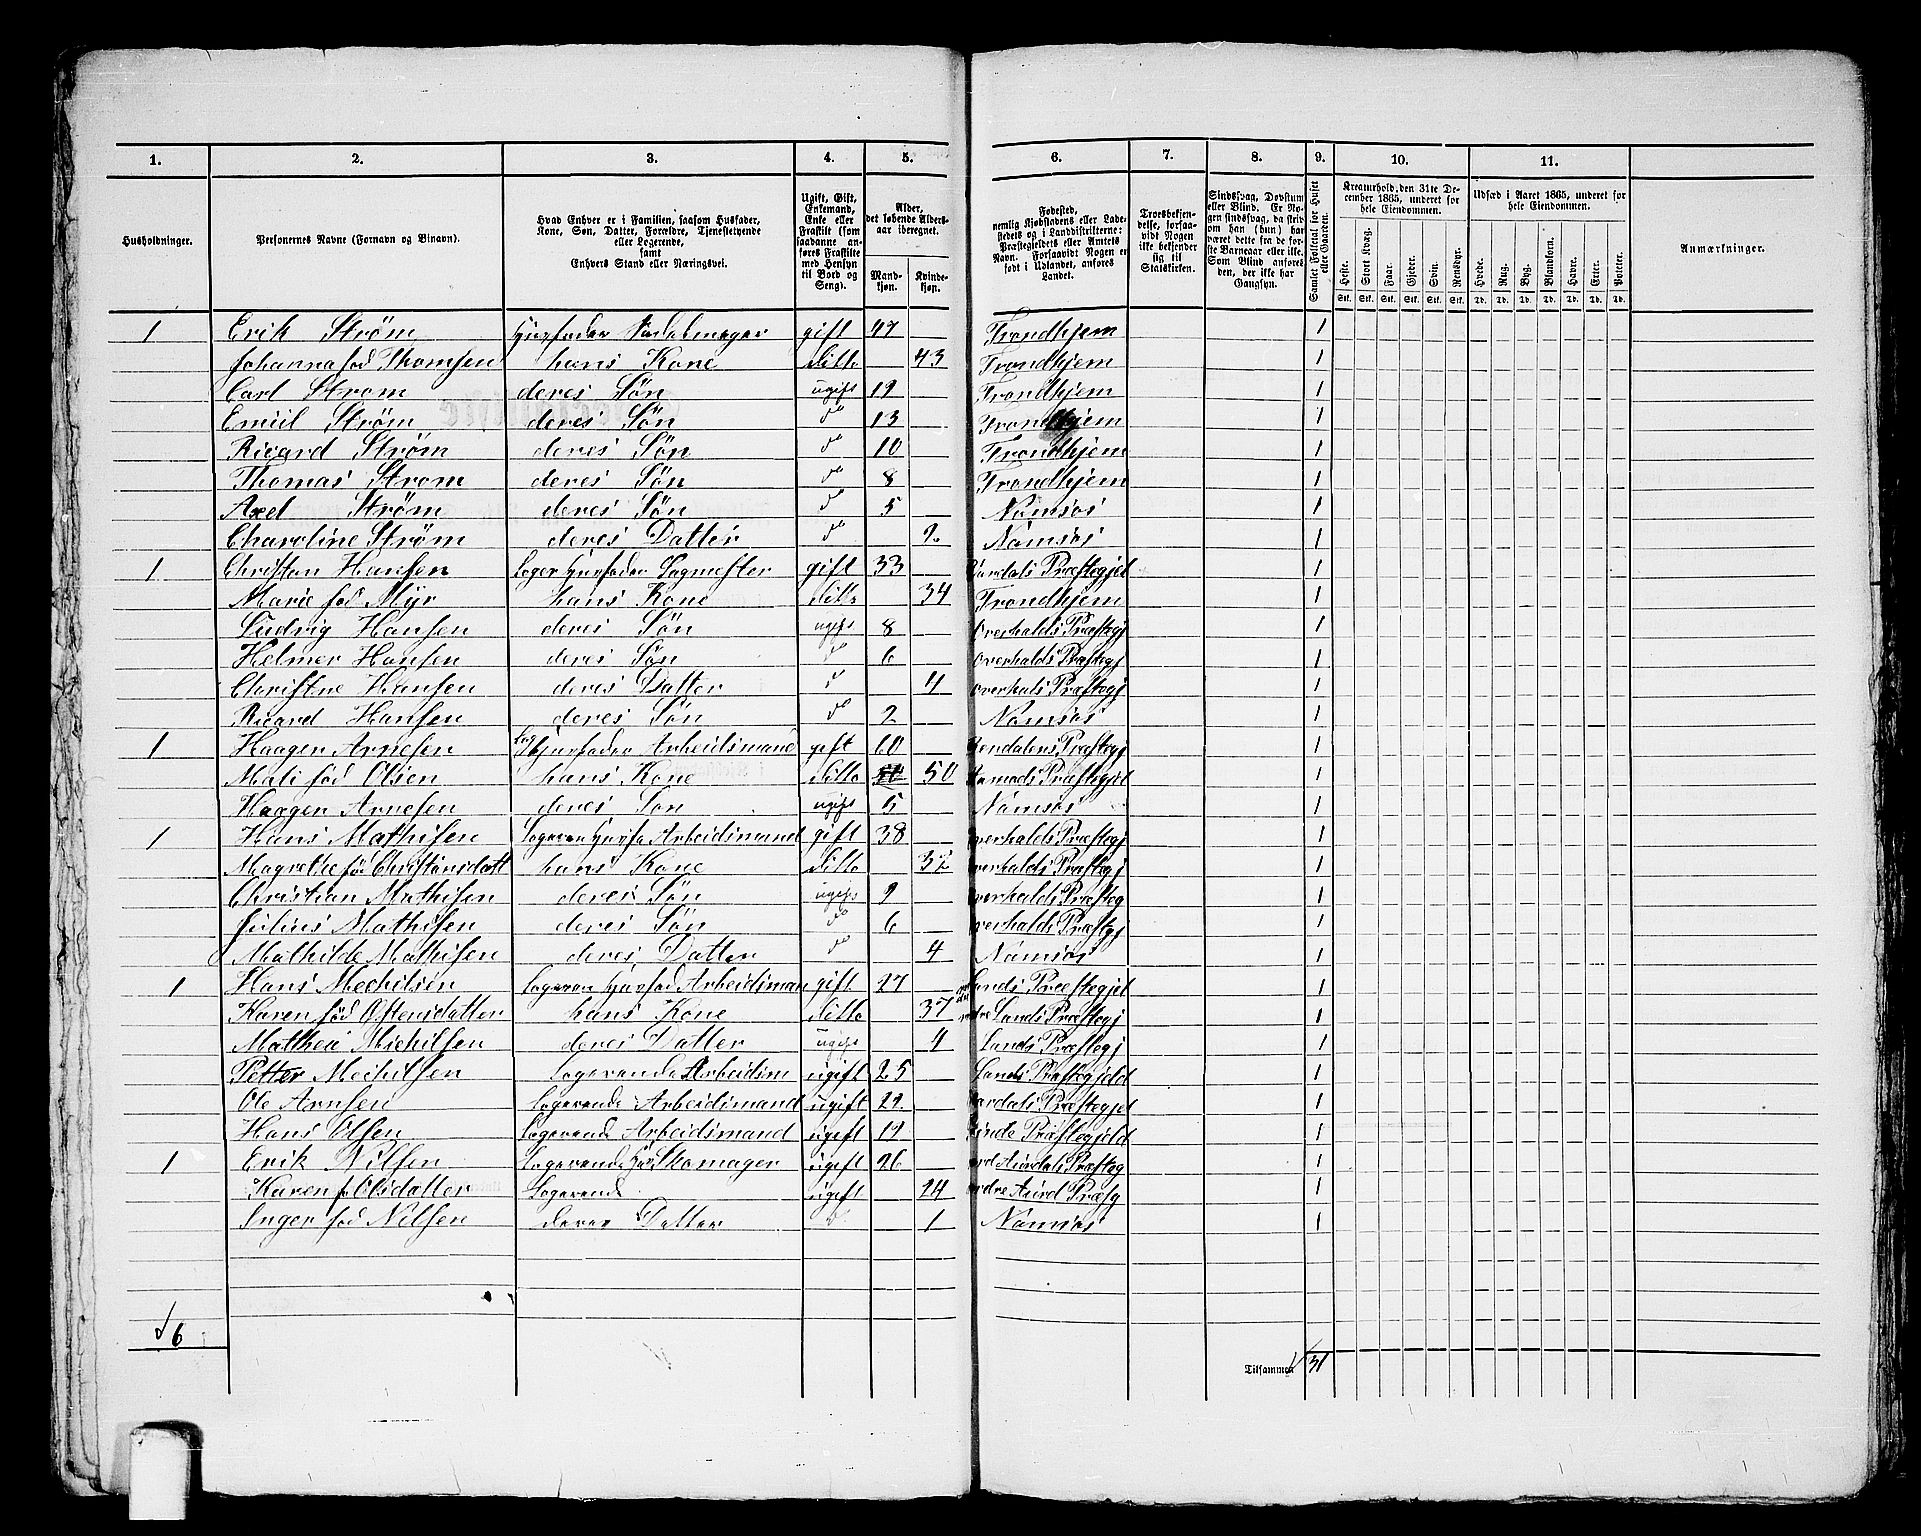 1. 2. 3. 4. 5. 6. 7. 8. 9. 10. 11.
Husholdninger.
Personernes Navne (Fornavn og Binavn).
Hvad Enhver er i Familien, saasom Husfader,
Kone, Søn, Datter, Forældre, Tjenestetyende
eller Logerende,
samt
Enhvers Stand eller Næringsvei.
Ugift, Gift,
Enkemand,
Enke eller
Fraskilt (som
saadanne an-
føres Fraskilte
med Hensyn
til Bord og
Seng).
Alder,
det løbende Alders-
aar iberegnet.
Mand-
kjøn.
Kvinde-
kjøn.
Fødested,
nemlig Kjøbstadens eller Lade-
stedets og i Landdistrikterne:
Præstegjeldets eller Amtets
Navn. Forsaavidt Nogen er
født i Udlandet, anføres
Landet.
Troesbekjen-
delse, forsaa-
vidt Nogen
ikke bekjender
sig til
Statskirken.
Sindssvag, Døvstum
eller Blind. Er No-
gen sindssvag, da skriv
om han (hun) har
været dette fra de før-
ste Barneaar eller ikke.
Som Blind ansøres
den, der ikke har
Gangsyn.
Samlet Folketal for Huset
eller Gaarden.
Kreaturhold, den 31te De-
cember 1865, underet for
hele Eiendommen.
Heste. Stort Kvæg. Faar. Gjeder. Svin. Rensdyr.
Stk. Stk. Stk. Stk. Stk. Stk.
Udsæd i Aaret 1865, underet for
hele Eiendommen.
Hvede. Rug. Byg. Blandkorn. Havre. Erter. Poteter.
Td. Td. Td. Td. Td. Td. Td.
Anmærkninger.
1 Erik Strøm Huusfader gift 47 Trondhjem 1
Johanna fød Thomsen hans Kone ditto 43 Trondhjem 1
Carl Strøm deres Søn ugift 19 Trondhjem 1
Emiil Strøm deres Søn do 13 Trondhjem 1
Ricard Strøm deres Søn do 10 Trondhjem 1
Thomas Strøm deres Søn do 8 Trondhjem 1
Axel Strøm deres Søn do 5 Namsos 1
Charoline Strøm deres Datter do 2 Namsos 1
1 Christan Hansen Loger Huusfader Sagmester gift 33 Præstegjel 1
Marie fød Myr hans Kone ditto 34 Trondhjem 1
Ludvig Hansen deres Søn ugift 8 Overhalds Præstegj 1
Helmer Hansen deres Søn do 6 Overhalds Præstegj 1
Christine Hansen deres Datter do 4 Overhals Præstegj 1
Ricard Hansen deres Søn do 2 Namsos 1
1 Haagen Arnesen Log Huusfader Arbeidsmand gift 60 Rendalens Præstegj 1
Mali fød Olsen hans Kone ditto 50 Præstegjel 1
Haagen Arnesen deres Søn ugift 5 Namsos 1
1 Hans Mathisen Logeren Huusfa Arbeidsmand gift 38 Overhalds Præstegj 1
Magrethe fød Christiansdatt hans Kone ditto 32 Overhalds Præstegj 1
Christian Mathisen deres Søn ugift 9 Overhalds Præsteg 1
Julius Mathisen deres Søn do 6 Overhalds Præstgj 1
Mathilde Mathisen deres Datter do 4 Namsos 1
1 Hans Mechilsen Logeren Huusfad Arbeidsman gift 27 Lands Præstegjel 1
Karen fød Ostensdatter hans Kone ditto 37 Lands Præstegj 1
Mathea Michilsen deres Datter ugift 4 Lands Præstegj 1
Petter Mechilsen Logerende Arbeidsm ugift 25 Lands Præstegjeld 1
Ole Arnsen Logerende Arbeidsmand ugift 22 Præstegjel 1
Hans Olsen Logerende Arbeidsmand ugift 19 Præstegjeld 1
1 Erik Nilsen Logerende Huus Skomager ugift 26 Aurdals Præsteg 1
Karen f Olsdatter Logerende ugift 24 Aurd Præsg 1
Inger fød Nilsen deres Datter do 1 Namsos 1
6
Tilsammen 31